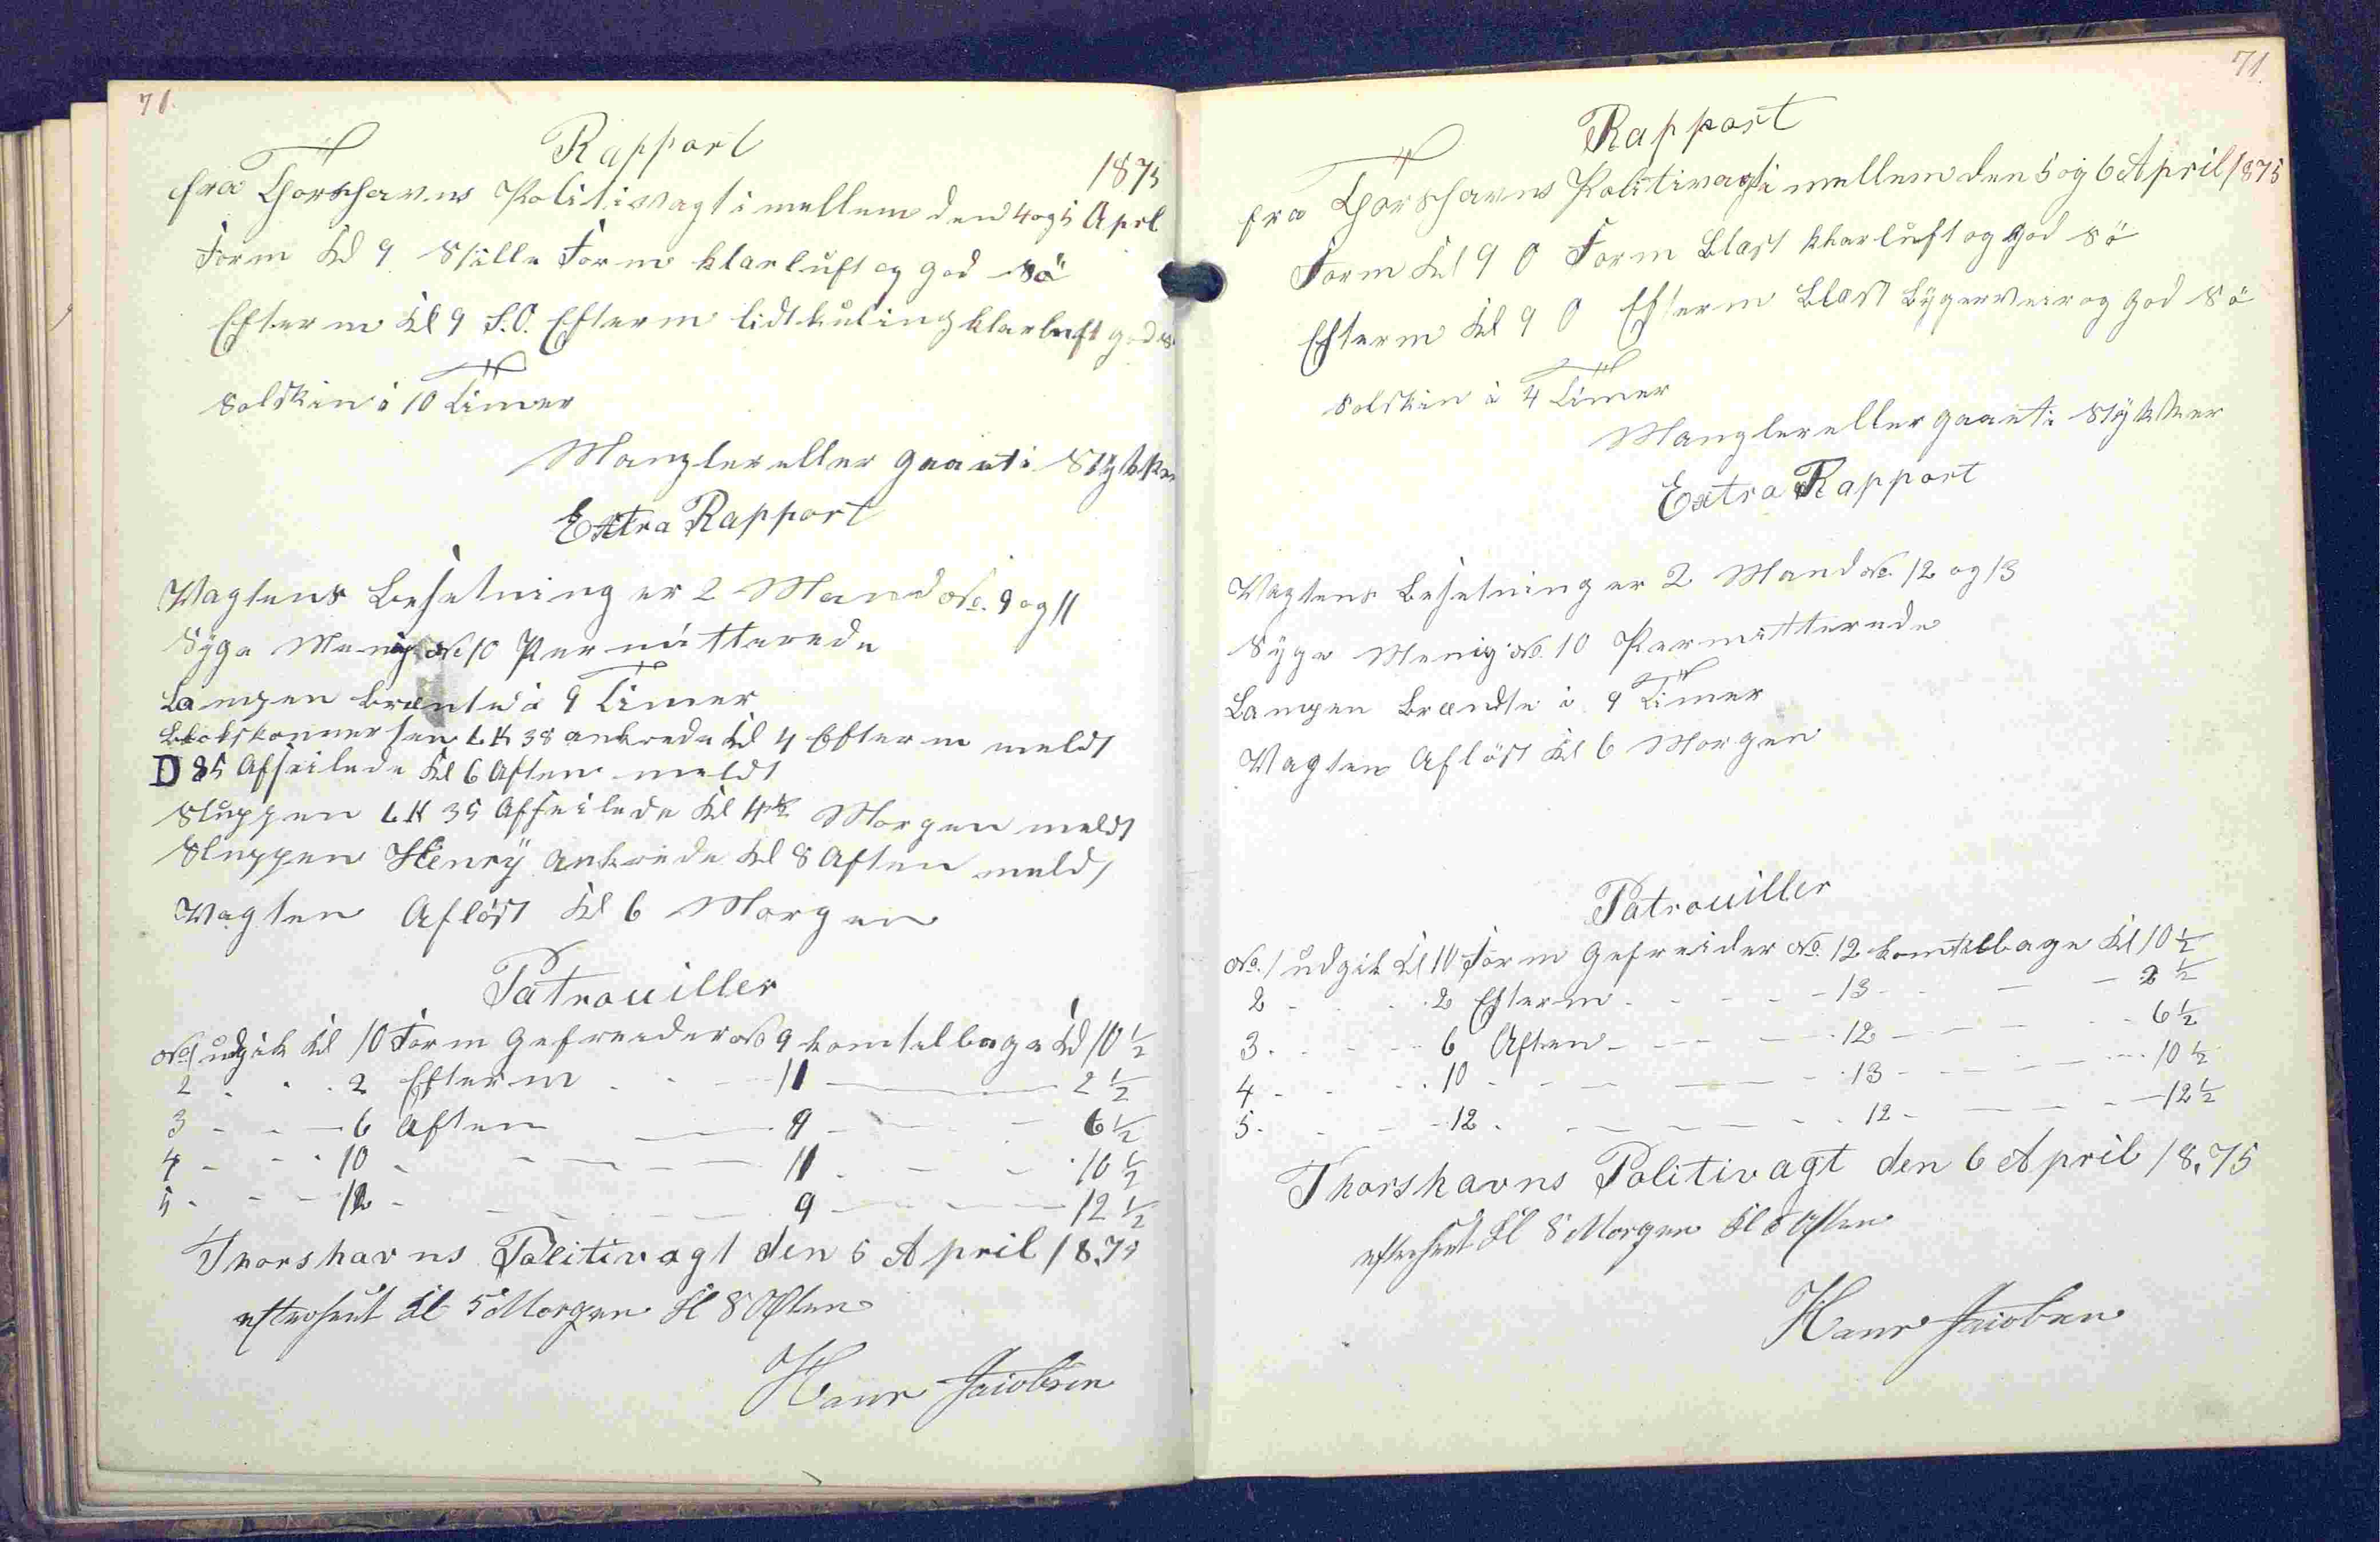 70.
Rapport
1875
fra Thorshavns Politivagt imellem den 4 og 5 Aprl
Form Kl 9 Stille Form klarluft og god Sö
Efterm Kl 9 S.O. Efterm lidt kuling klarluft god S
Solskin i 10 Timer
Mangler eller gaaet i Stykker
Extra Rapport
Vagtens Besetning er 2 Mand No. 9 og 11
Syge Menig No 10 Permitterede
Lampen brænte i 9 Timer
LK 38 ankrede Kl 4 Efterm meldt
D 85 Afseilede Kl 6 Aften meldt
Sluppen LK 35 Afseilede Kl 4½ Morgen meldt
Sluppen Henrÿ Ankrede Kl 8 Aften meldt
Vagten Aflöst Kl 6 Morgen
Patrouiller
No 1 udgik Kl 10 Form Gefreider No 9 kom tilbage Kl 10 ½
2 - - - 2 Efterm - - - 11 - - - 2 ½
3 - - - 6 Aften - - - 9 - - - 6 ½
4 - - - 10 - - - 11 - - - 10 ½
5 - - - 12 - - - 9 - - - 12 ½
Thorshavns Politivagt den 5 April 18.75
efterseet Kl 5 Morgen Kl 8 Aften
Hans Jacobsen
71.
Rapport
fra Thorshavns Politivagt imellem den 5 og 6 April 1875
Form Kl 9 O Form Blast klarluft og god Sö
Efterm Kl 9 O Efterm Blast Bygerveir og god Sö
Solskin i 4 Timer
Mangler eller gaaet i Stykker
Extra Rapport
Vagtens Besetning er 2 Mand No. 12 og 13
Syge Menig No. 10 Permitterede
Lampen Brændte i 9 Timer
Vagten Aflöst Kl 6 Morgen
Patrouiller
No. 1 udgik Kl 10 Form Gefreider No. 12 kom tilbage Kl 10 ½
2 - - - 2 Efterm - - - 13 - - - 2 ½
3 - - - 6 Aften - - - 12 - - - 6 ½
4 - - - 10 - - - 13 - - - 10 ½
5 - - - 12 - - - 12 - - - 12 ½
Thorshavns Politivagt den 6 April 18.75
efterseet Kl 8 Morgen Kl 8 Aften
Hans Jacobsen